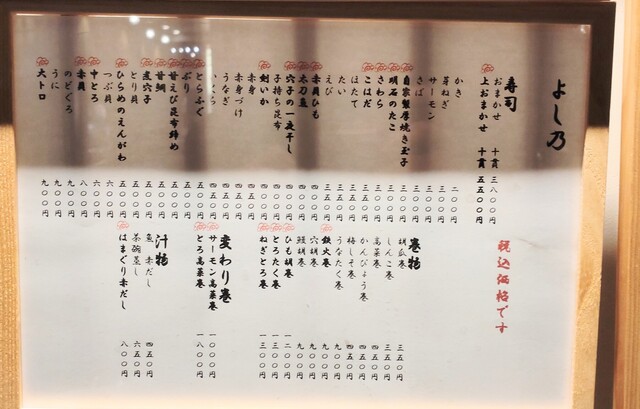 よし乃
税込価格です
寿司
おまかせ 十貫 三八〇〇円
上おまかせ 十貫 五五〇〇円
かき 二〇〇円
芽ねぎ 三〇〇円
サーモン 三〇〇円
さば 三〇〇円
自家製厚焼き玉子 三〇〇円
明石のたこ
さわら 三五〇円
こはだ 三五〇円
ほたて 三五〇円
たい 三五〇円
えび 三五〇円
赤貝ひも 四〇〇円
太刀魚 四〇〇円
穴子の一夜干し 四〇〇円
子持ち昆布 四〇〇円
剣いか 四〇〇円
赤身 四五〇円
赤身づけ 四五〇円
うなぎ 四五〇円
四五〇円
とらふぐ 五〇〇円
ぶり 五〇〇円
甘えび昆布締め 五〇〇円
甘鯛 五〇〇円
煮穴子 五〇〇円
とり貝 五〇〇円
ひらめのえんがわ 五〇〇円
つぶ貝 六〇〇円
中とろ 六〇〇円
赤貝 八〇〇円
のどぐろ 九〇〇円
うに 九〇〇円
大トロ 九〇〇円
巻物
胡瓜巻 三五〇円
しんこ巻 三五〇円
高菜巻 四五〇円
かんぴょう巻 四五〇円
梅しそ巻 四五〇円
うなたく巻 九〇〇円
鉄火巻 九〇〇円
穴胡巻 九〇〇円
鰻胡巻 九〇〇円
ひも胡巻 一二〇〇円
とろたく巻 一三〇〇円
ねぎとろ巻 一三〇〇円
変わり巻
サーモン高菜巻 一〇〇〇円
とろ高菜巻 一八〇〇円
汁物
魚 赤だし 四五〇円
茶碗蒸し 六五〇円
はまぐり赤だし 八〇〇円